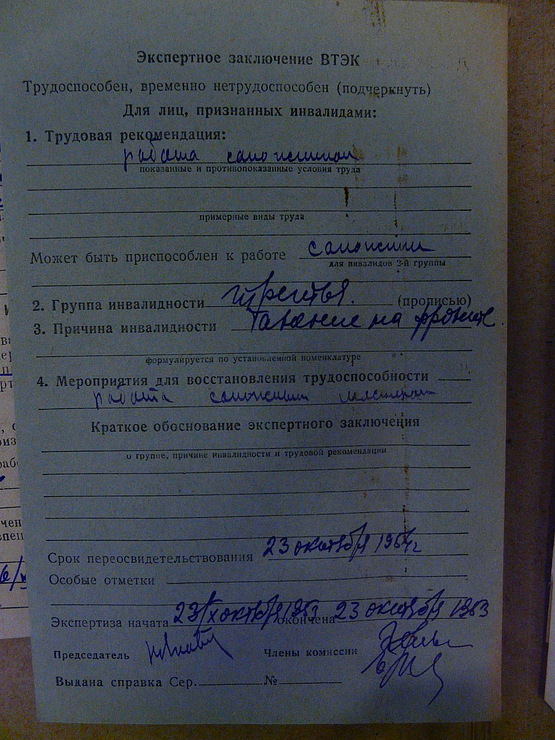 Экспертное заключение ВТЭК
Трудоспособен, временно нетрудоспособен (подчеркнуть)
Для лиц, признанных инвалидами:
1. Трудовая рекомендация:
работа
показанные и противопоказанные условия труда
примерные виды труда
Может быть приспособлен к работе
для инвалидов 2-й группы
2. Группа инвалидности третья. (прописью)
3. Причина инвалидности на фронте.
формулируется по установленной номенклатуре
4. Мероприятия для восстановления трудоспособности
работа
Краткое обоснование экспертного заключения
о группе, причине инвалидности и трудовой рекомендации
Срок переосвидетельствования 23 октября 1964г
Особые отметки
Экспертиза начата окончена 23 октября 1963
Председатель Члены комиссии
Выдана справка Сер. №